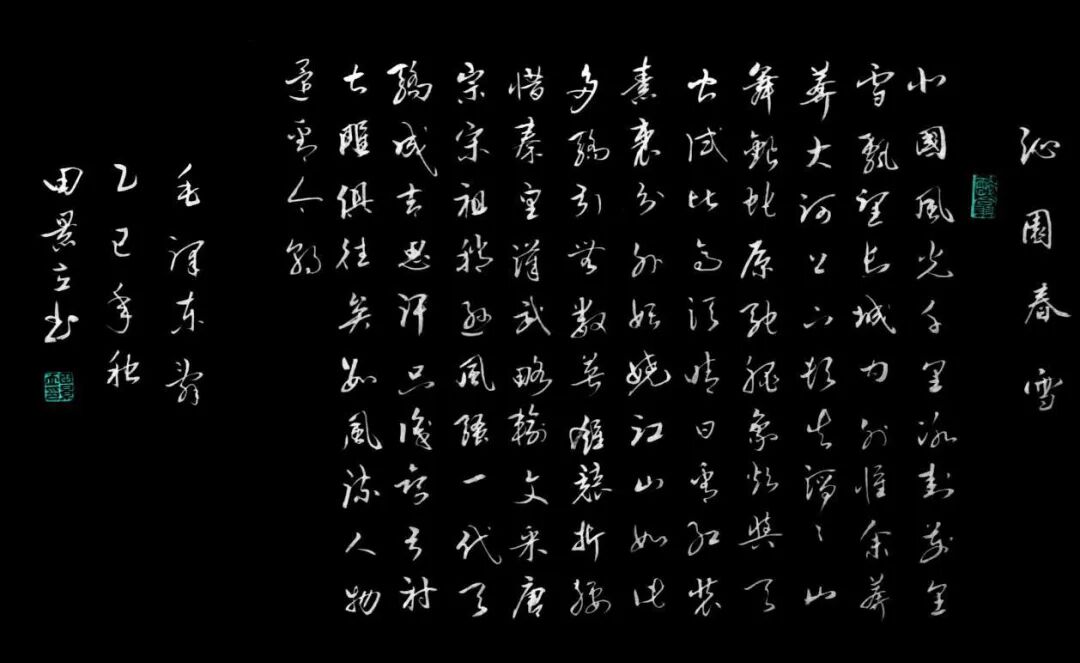 沁園春雪
北國風光千里冰封萬里
雪飄望長城内外惟余莽
莽大河上下頓失滔〻山
舞銀蛇原馳蠟象欲與天
公試比高須晴日看紅裝
素裹分外妖嬈江山如此
多嬌引無數英雄競折腰
惜秦皇漢武略輸文采唐
宗宋祖稍遜風騷一代天
驕成吉思汗只識彎弓射
大雕俱往矣數風流人物
還看今朝
毛澤東詞
乙巳年秋
田景立書